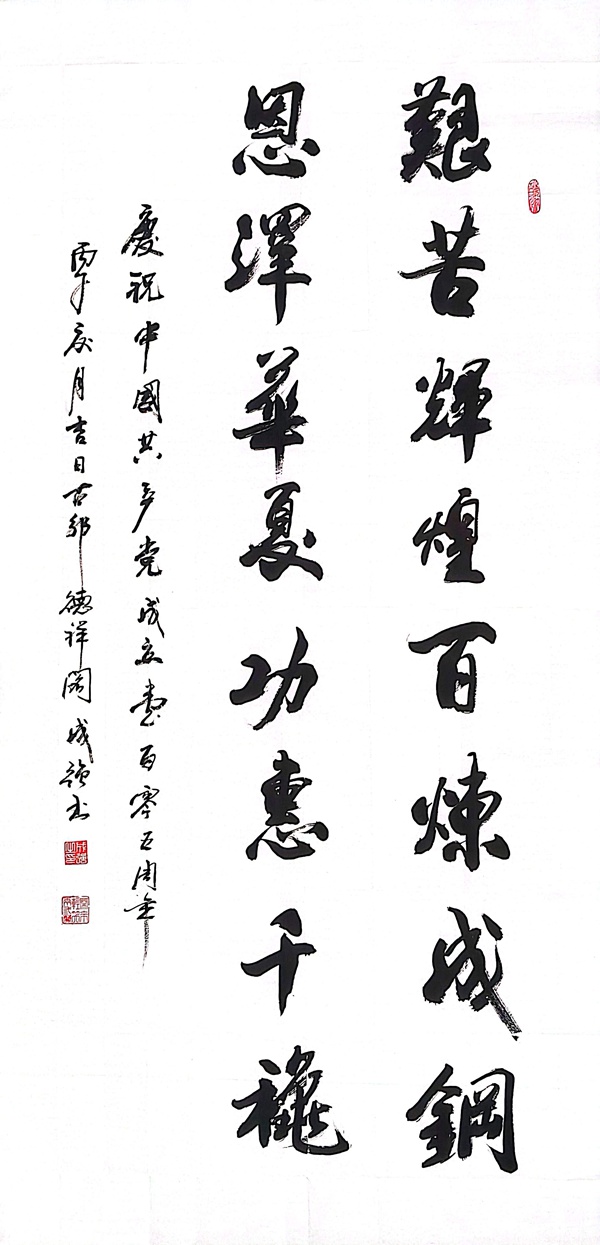 艱苦輝煌百煉成鋼
恩澤華夏功惠千穐
慶祝中國共产党成立壹百零五周年
丙午月吉日古德祥阁成强书